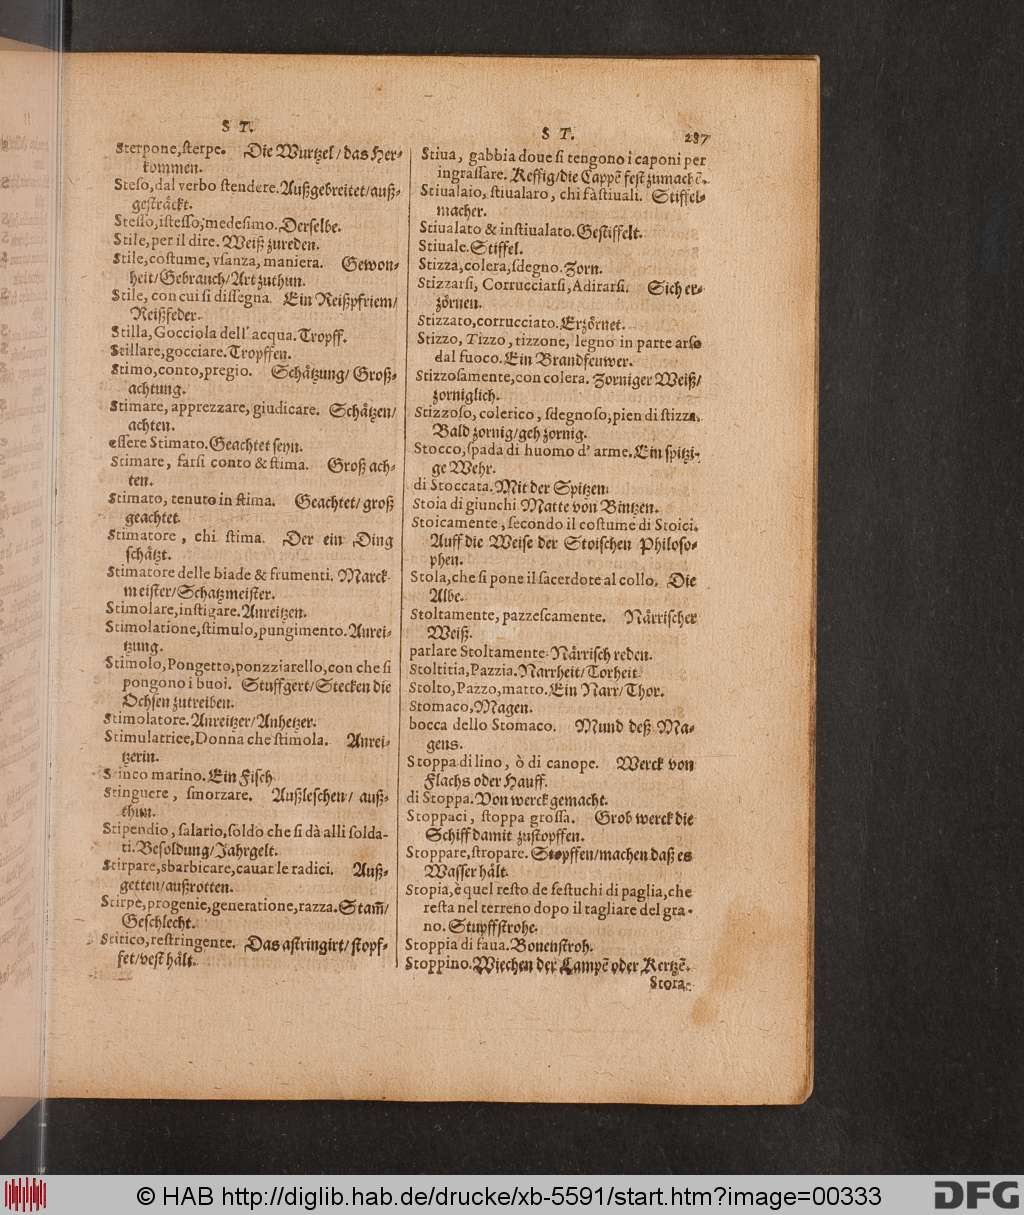 S T.
Sterpone, sterpe. Die Wurtzel / das Her-
kommen.
Steso, dal verbo stendere. Außgebreitet / auß-
gesträckt.
Stesso, istesso, medesimo. Derselbe.
Stile, per il dire. Weiß zureden.
Stile, costume, vsanza, maniera. Gewon-
heit / Gebrauch / Art zuthun.
Stile, con cui si dissegna. Ein Reißpfriem /
Reißfeder.
Stilla, Gocciola dell' acqua. Tropff.
Stillare, gocciare. Tropffen.
Stimo, conto, pregio. Schätzung / Groß-
achtung.
Stimare, apprezzare, giudicare. Schätzen /
achten.
essere Stimato. Geachtet seyn.
Stimare, farsi conto & stima. Groß ach-
ten.
Stimato, tenuto in stima. Geachtet / groß
geachtet.
Stimatore, chi stima. Der ein Ding
schätzt.
Stimatore delle biade & frumenti. Marck
meister / Schatzmeister.
Stimolare, instigare. Anreitzen.
Stimolatione, stimulo, pungimento. Anrei-
tzung.
Stimolo, Pongetto, ponzziarello, con che si
pongono i buoi. Stuffgert / Stecken die
Ochsen zutreiben.
Stimolatore. Anreitzer / Anhetzer.
Stimulatrice, Donna che stimola. Anrei-
tzerin.
Stinco marino. Ein Fisch
Stinguere, smorzare. Außleschen / auß-
thun.
Stipendio, salario, soldo che si dà alli solda-
ti. Besoldung / Jahrgelt.
Stirpare, sbarbicare, cauar le radici. Auß-
getten / außrotten.
Stirpe, progenie, generatione, razza. Stam̃ /
Geschlecht.
Stitico, restringente. Das astringirt / stopf-
fet / vest hält.
S T. 287
Stiua, gabbia doue si tengono i caponi per
ingrassare. Keffig / die Cappẽ fest zumachẽ.
Stiualaio, stiualaro, chi fà stiuali. Stiffel-
macher.
Stiualato & instiualato. Gestiffelt.
Stiuale. Stiffel.
Stizza, colera, sdegno. Zorn.
Stizzarsi, Corrucciarsi, Adirarsi. Sich er-
zörnen.
Stizzato, corrucciato. Erzörnet.
Stizzo, Tizzo, tizzone, legno in parte arso
dal fuoco. Ein Brandfeuwer.
Stizzosamente, con colera. Zorniger Weiß /
zorniglich.
Stizzoso, colerico, sdegnoso, pien di stizza.
Bald zornig / geh zornig.
Stocco, spada di huomo d' arme. Ein spitzi-
ge Wehr.
di Stoccata. Mit der Spitzen.
Stoia di giunchi Matte von Bintzen.
Stoicamente, secondo il costume di Stoici.
Auff die Weise der Stoischen Philoso-
phen.
Stola, che si pone il sacerdote al collo. Die
Albe.
Stoltamente, pazzescamente. Närrischer
Weiß.
parlare Stoltamente. Närrisch reden.
Stoltitia, Pazzia. Narrheit / Torheit
Stolto, Pazzo, matto. Ein Narr / Thor.
Stomaco, Magen.
bocca dello Stomaco. Mund deß Ma-
gens.
Stoppa di lino, ò di canope. Werck von
Flachs oder Hauff.
di Stoppa. Von werck gemacht.
Stoppaci, stoppa grossa. Grob werck die
Schiff damit zustopffen.
Stoppare, stropare. Stopffen / machen daß es
Wasser hält.
Stopia, è quel resto de festuchi di paglia, che
resta nel terreno dopo il tagliare del gra-
no. Stupffstrohe.
Stoppia di faua. Bonenstroh.
Stoppino. Wiechen der Lampẽ oder Kertzẽ.
Stora-
© HAB http://diglib.hab.de/drucke/xb-5591/start.htm?image=00333
DFG